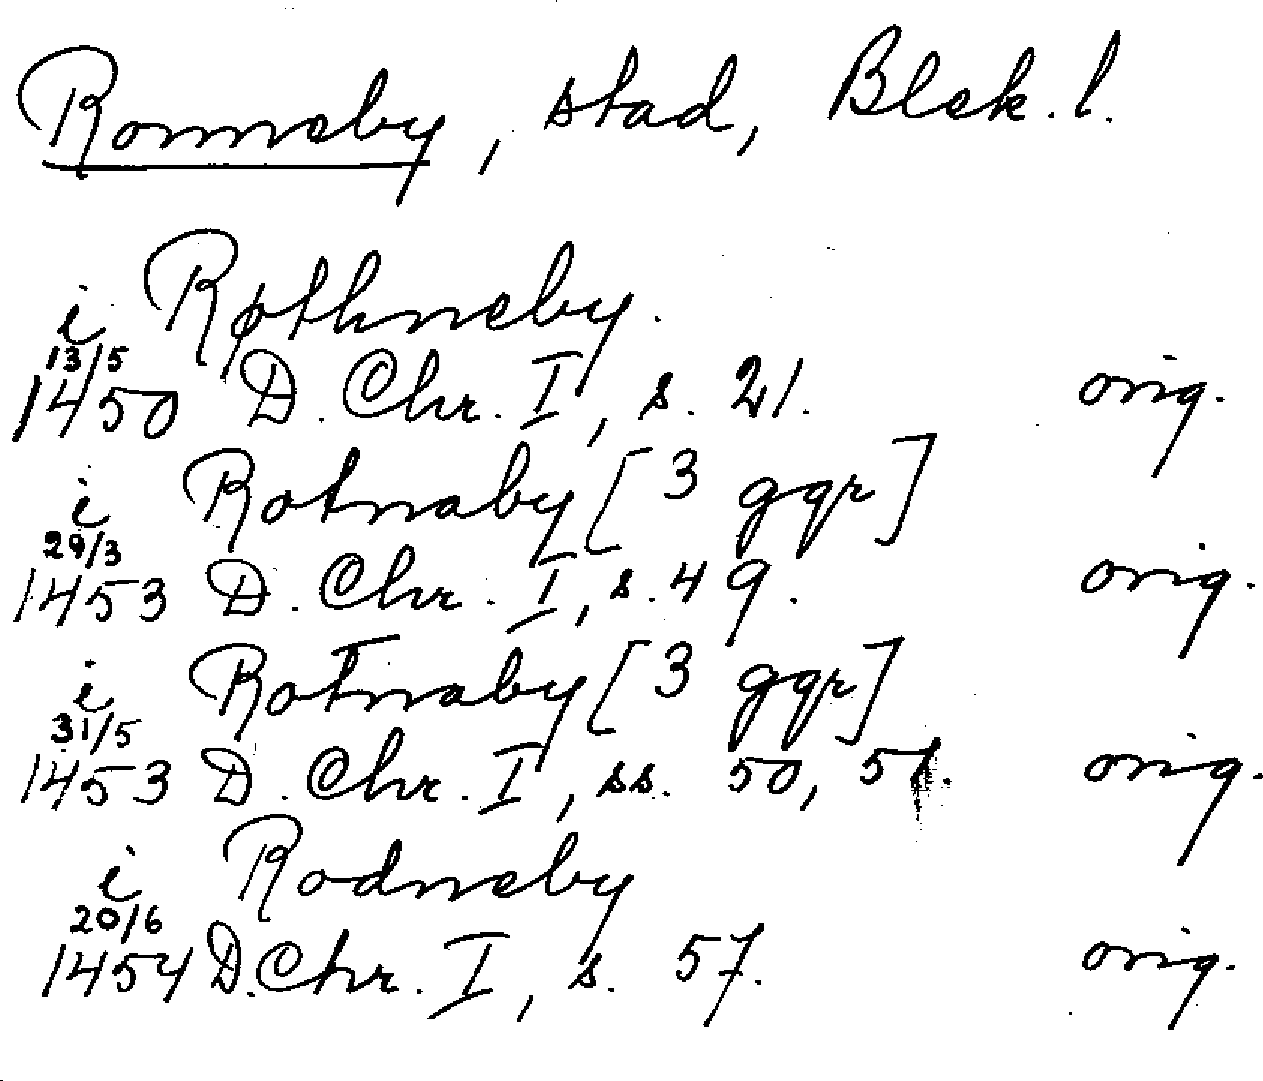 Ronneby, stad, Blek. l.
i Røthneby.
13/5
1450 D. Chr. I, s. 21. orig.
i Rotnaby [3 ggr]
29/3
1453 D. Chr. I, s. 49. orig.
i Rotnaby [3 ggr]
31/5
1453 D. Chr. I, ss. 50, 51. orig.
i Rodneby
20/6
1454 D. Chr. I, s. 57. orig.